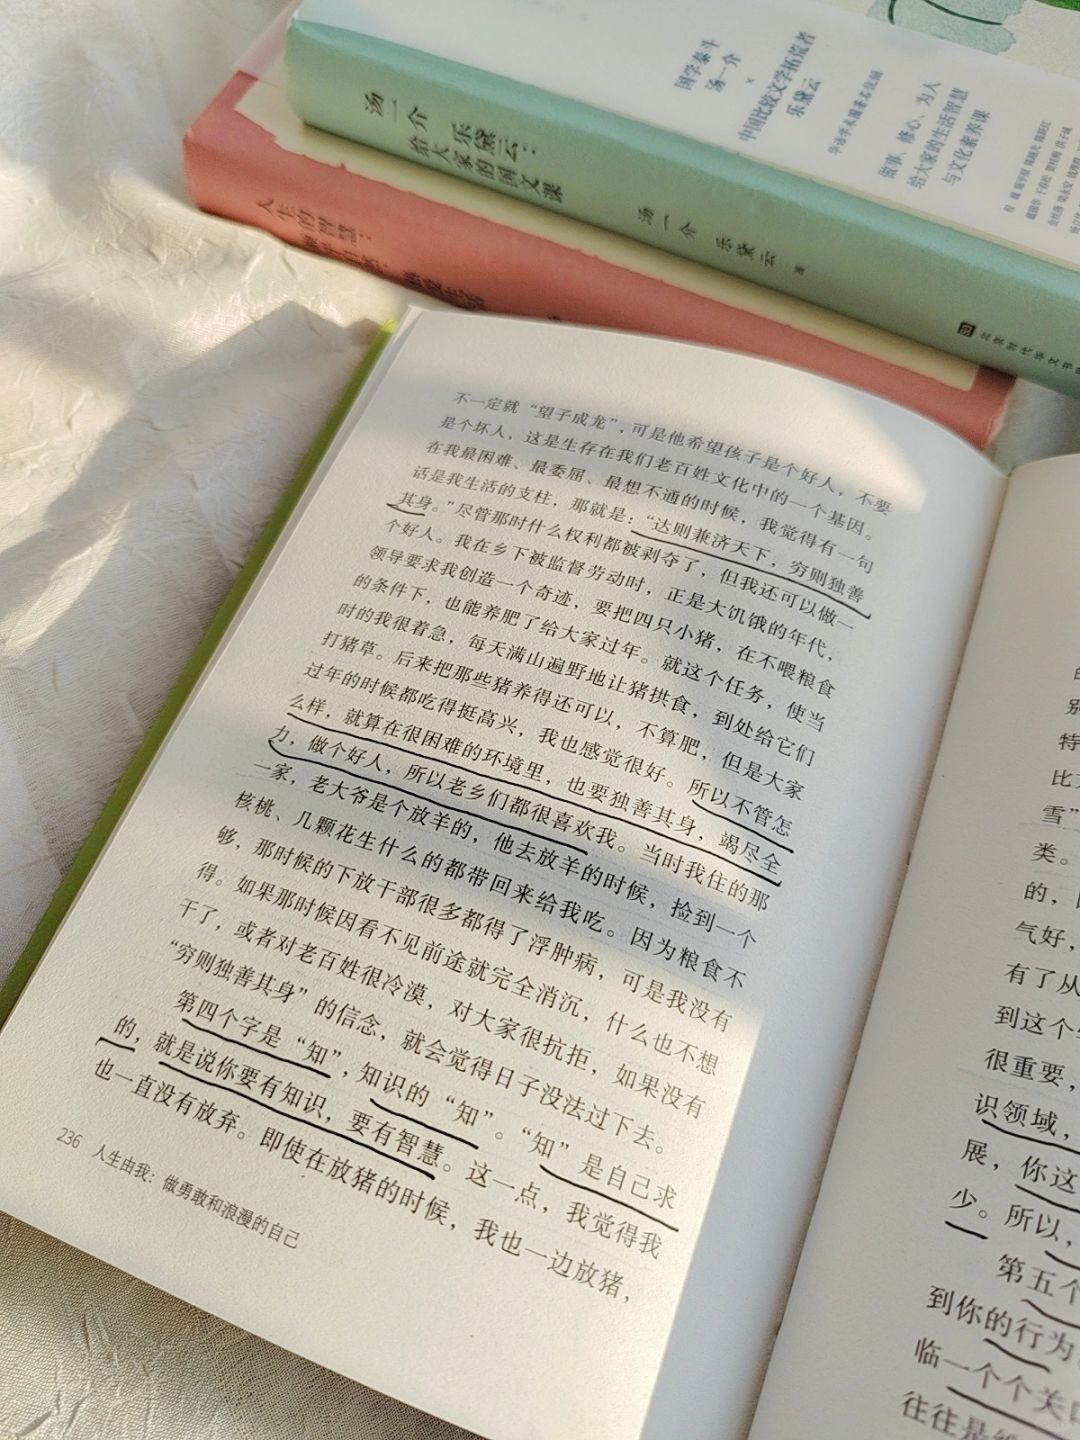 国学泰斗
汤一介
×
中国比较文学拓荒者
乐黛云
做事、修心、为人
给大家的生活智慧
与文化素养课
汤一介 乐黛云：
给大家的国文课
汤一介 乐黛云 著
人生的智慧：
不一定就“望子成龙”，可是他希望孩子是个好人，不要
是个坏人，这是生存在我们老百姓文化中的一个基因。
在我最困难、最委屈、最想不通的时候，我觉得有一句
话是我生活的支柱，那就是：“达则兼济天下，穷则独善
其身。”尽管那时什么权利都被剥夺了，但我还可以做一
个好人。我在乡下被监督劳动时，正是大饥饿的年代，
领导要求我创造一个奇迹，要把四只小猪，在不喂粮食
的条件下，也能养肥了给大家过年。就这个任务，使当
时的我很着急，每天满山遍野地让猪拱食，到处给它们
打猪草。后来把那些猪养得还可以，不算肥，但是大家
过年的时候都吃得挺高兴，我也感觉很好。所以不管怎
么样，就算在很困难的环境里，也要独善其身，竭尽全
力，做个好人，所以老乡们都很喜欢我。当时我住的那
一家，老大爷是个放羊的，他去放羊的时候，捡到一个
核桃、几颗花生什么的都带回来给我吃。因为粮食不
够，那时候的下放干部很多都得了浮肿病，可是我没有
得。如果那时候因看不见前途就完全消沉，什么也不想
干了，或者对老百姓很冷漠，对大家很抗拒，如果没有
“穷则独善其身”的信念，就会觉得日子没法过下去。
第四个字是“知”，知识的“知”。“知”是自己求
的，就是说你要有知识，要有智慧。这一点，我觉得我
也一直没有放弃。即使在放猪的时候，我也一边放猪，
236 人生由我：做勇敢和浪漫的自己
别
特
雪”
类。
的，
气好，
有了从
到这个
很重要，
识领域，
展，你这
少。所以，
第五个
到你的行为
临一个个关
往往是